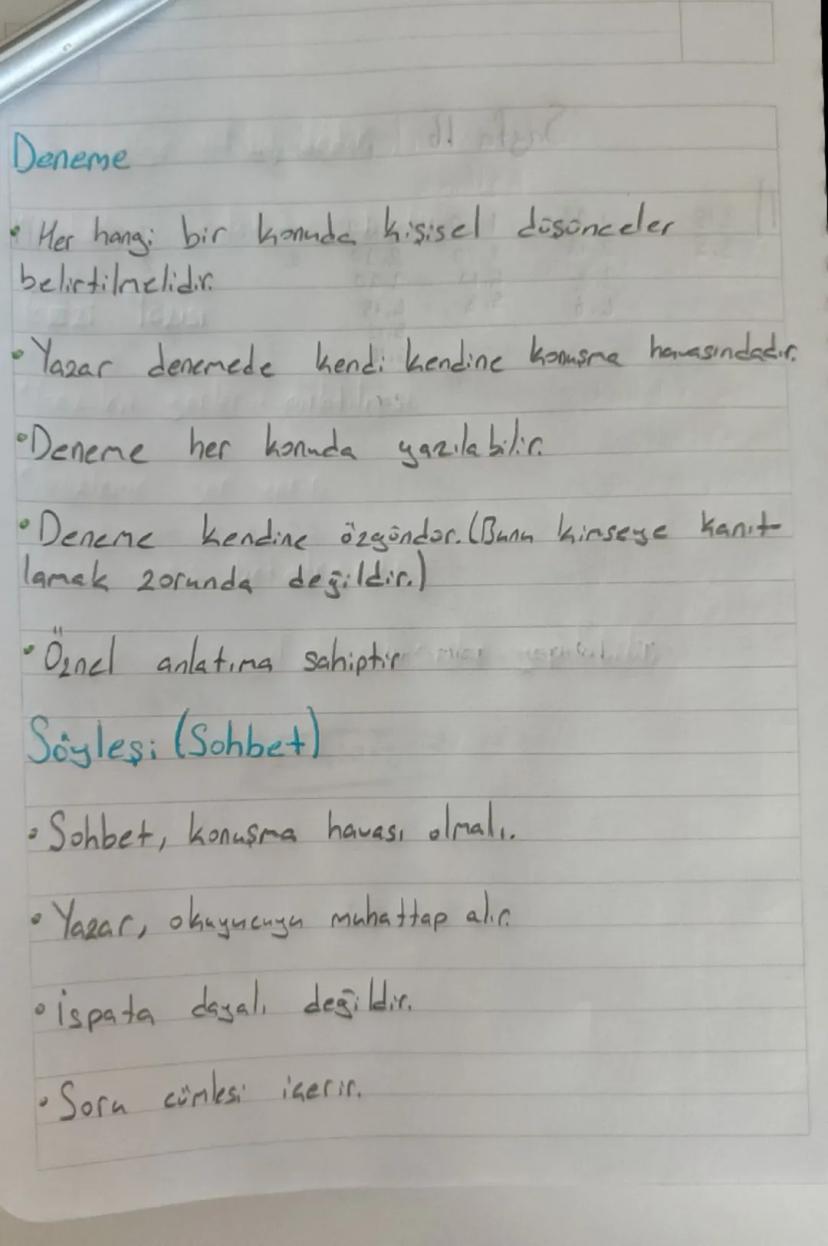 Deneme
• Her hangi bir konuda kişisel düşünceler
belirtilmelidir.
• Yazar denemede kendi kendine konuşma havasındadır.
• Deneme her konuda yazılabilir.
• Deneme kendine özgündür. (Bunu kimseye kanıt-
lamak zorunda değildir.)
• Öznel anlatıma sahiptir
Söyleşi (Sohbet)
• Sohbet, konuşma havası olmalı.
• Yazar, okuyucuyu muhattap alır.
• İspata dayalı değildir.
• Soru cümlesi içerir.